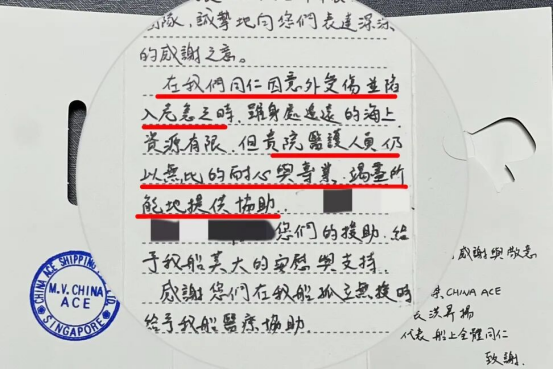 隊,誠摯地向您們表達深深
的感謝之意。
在我們同仁因意外受傷並陷
入危急之時,雖身處遙遠的海上
資源有限,但貴院醫護人員仍
以無比的耐心與專業,竭盡所
能地提供協助.
您們的援助,給
予我船莫大的安慰與支持.
感謝您們在我船孤立無援時
給予我船醫療協助.
感謝與敬意
CHINA ACE
代表船上全體同仁
致謝.
CHINA ACE SHIPPING
M.V. CHINA
ACE
SINGAPORE